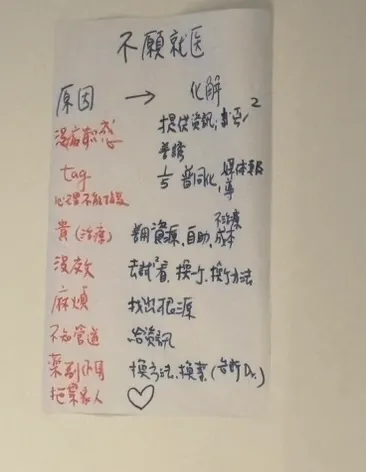 不願就醫
原因 → 化解
沒病識感 提供資訊, 2
普
tag 普同化, 媒体報
心理不能接受 導
貴 (治療) 善用資源, 自助, 成本
不治療
沒效 去試看, 換个, 換个方法
麻煩 找出根源
不知管道 給資訊
藥副作用 換方法、換藥 (診斷 Dr.)
拖累家人 ♡